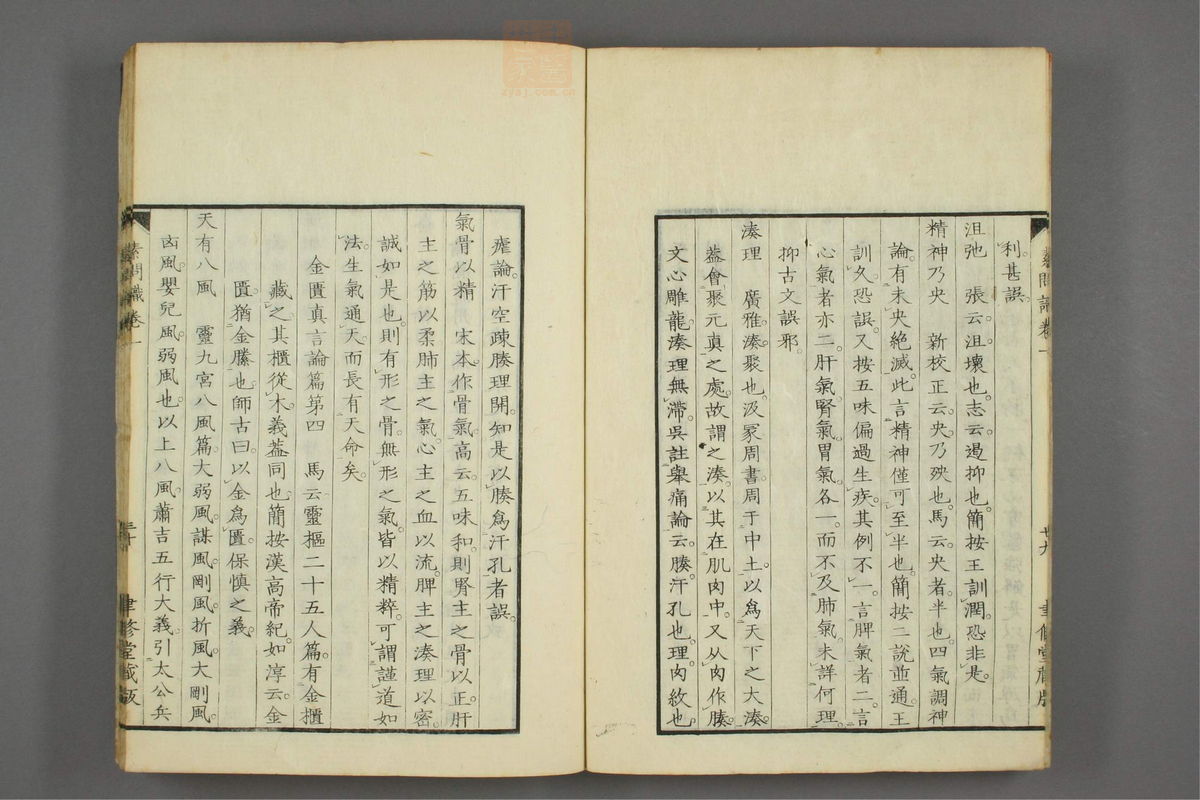 利甚誤。
沮弛　張云。沮。壞也。志云。遏抑也。簡按王訓潤。恐非是。
精神乃央　新校正云。央乃殃也。馬云。央者。半也。四氣調神
論。有未央絕滅。此言精神僅可至半也。簡按二說並通。王
訓久。恐誤。又按五味偏過生疾。其例不一。言脾氣者二。言
心氣者亦二。肝氣腎氣胃氣各一。而不及肺氣。未詳何理。
抑古文誤邪。
湊理　廣雅。湊。聚也。汲冢周書。周于中土。以爲天下之大湊。
蓋會聚元真之處。故謂之湊。以其在肌肉中。又从肉作腠。
文心雕龍。湊理無滯。吳註擧痛論云。腠。汗孔也。理。肉紋也。
瘧論。汗空疎。腠理開。知是以腠爲汗孔者誤。
氣骨以精　宋本作骨氣。高云。五味和。則腎主之骨以正。肝
主之筋以柔。肺主之氣。心主之血以流。脾主之湊理以密。
誠如是也。則有形之骨。無形之氣。皆以精粹。可謂謹道如
法。生氣通天。而長有天命矣。
金匱真言論篇第四　馬云。靈樞二十五人篇。有金櫃
藏之。其櫃從木。義蓋同也。簡按漢高帝紀。如淳云。金
匱。猶金縢也。師古曰。以金爲匱。保慎之義。
天有八風　靈九宮八風篇。大弱風。謀風。剛風。折風。大剛風。
凶風。嬰兒風。弱風也。以上八風。蕭吉五行大義。引太公兵
素問識卷一
三十
聿修堂藏版
素問識卷一
廿九
聿修堂藏版
zysj.com.cn